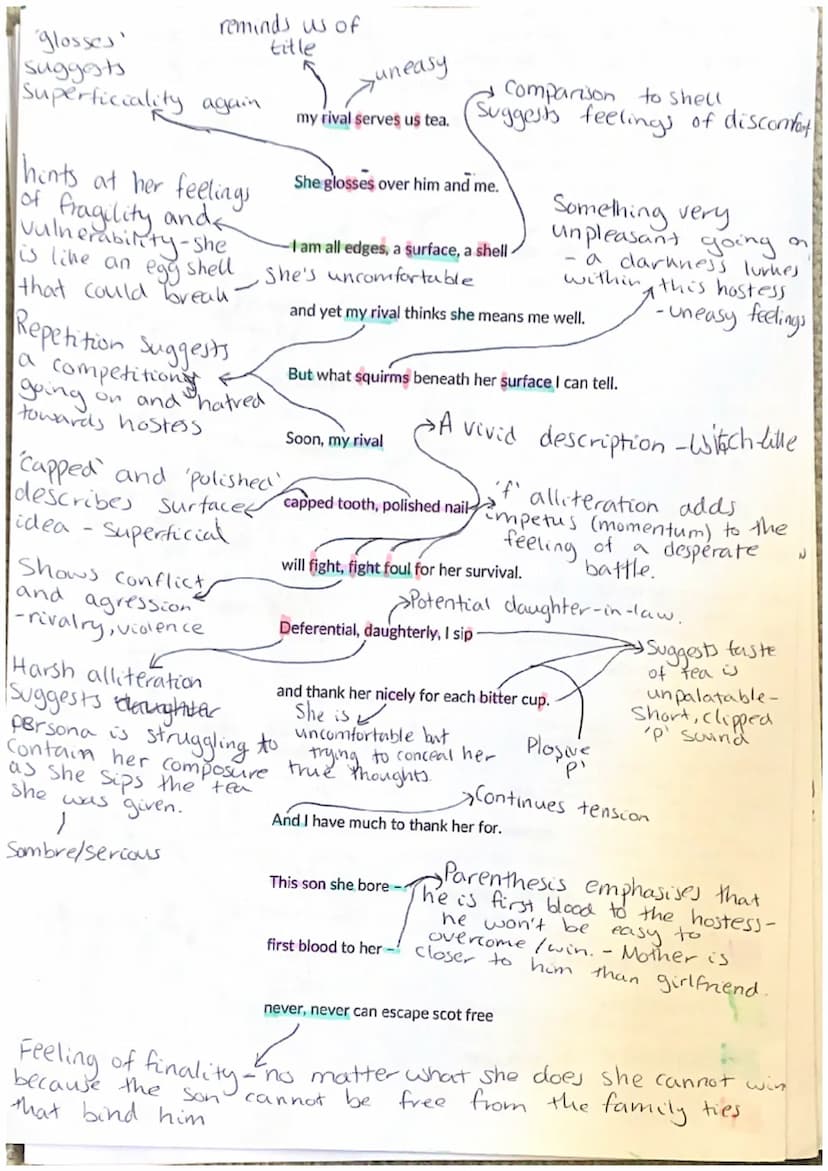 'glosses'
suggests
superficiality again
reminds us of
title
uneasy
my rival serves us tea.
Comparison to shell
suggests feelings of discomfort
She glosses over him and me.
hints at her feelings
of fragility and
vulnerability - she
is like an egg shell
that could break
I am all edges, a surface, a shell
She's uncomfortable
Something very
unpleasant going on
- a darkness lurkes
within this hostess
- uneasy feelings
and yet my rival thinks she means me well.
Repetition suggests
a competition
going on and hatred
towards hostess
But what squirms beneath her surface I can tell.
Soon, my rival
A vivid description - Witch-like
'capped' and 'polished'
describes surface
idea - superficial
capped tooth, polished nail
'f' alliteration adds
impetus (momentum) to the
feeling of a desperate
battle.
will fight, fight foul for her survival.
Shows conflict
and agression
- rivalry, violence
Potential daughter-in-law.
Deferential, daughterly, I sip
Harsh alliteration
suggests daughter
persona is struggling to
contain her composure
as she sips the tea
she was given.
Sombre/serious
and thank her nicely for each bitter cup.
She is
uncomfortable but
trying to conceal her
true thoughts.
Plosive
'p'
Suggests taste
of tea is
unpalatable -
short, clipped
'p' sound
Continues tension
And I have much to thank her for.
This son she bore –
first blood to her –
Parenthesis emphasises that
he is first blood to the hostess -
he won't be easy to
overcome/win. - Mother is
closer to him than girlfriend.
never, never can escape scot free
Feeling of finality - no matter what she does she cannot win
because the son cannot be free from the family ties
that bind him